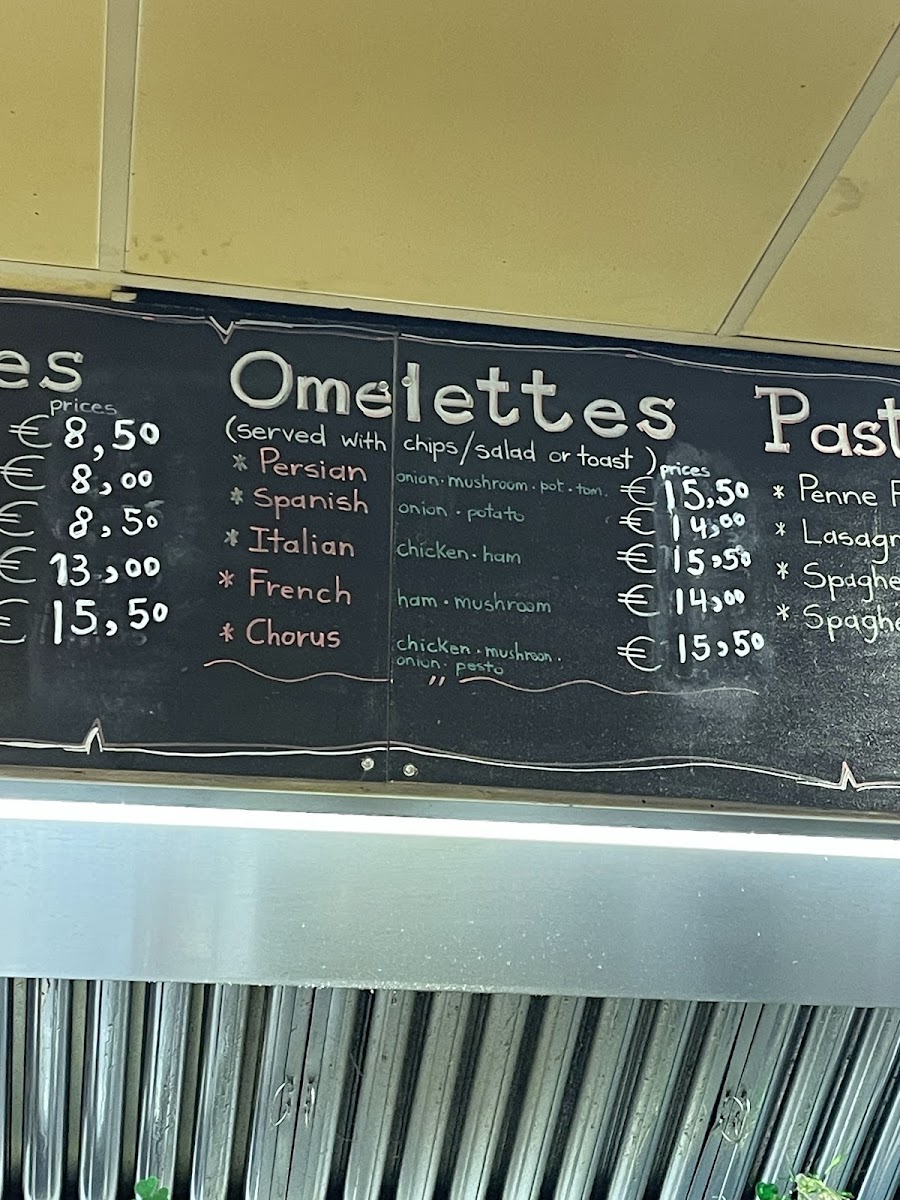 es
prices
€ 8,50
€ 8,00
€ 8,50
€ 13,00
€ 15,50
Omelettes
(served with chips/salad or toast)
prices
* Persian onion · mushroom · pot · tom. € 15,50
* Spanish onion · potato € 14,00
* Italian chicken · ham € 15,50
* French ham · mushroom € 14,00
* Chorus chicken · mushroon · € 15,50
onion · pesto
Past
* Penne P
* Lasagn
* Spaghe
* Spaghe